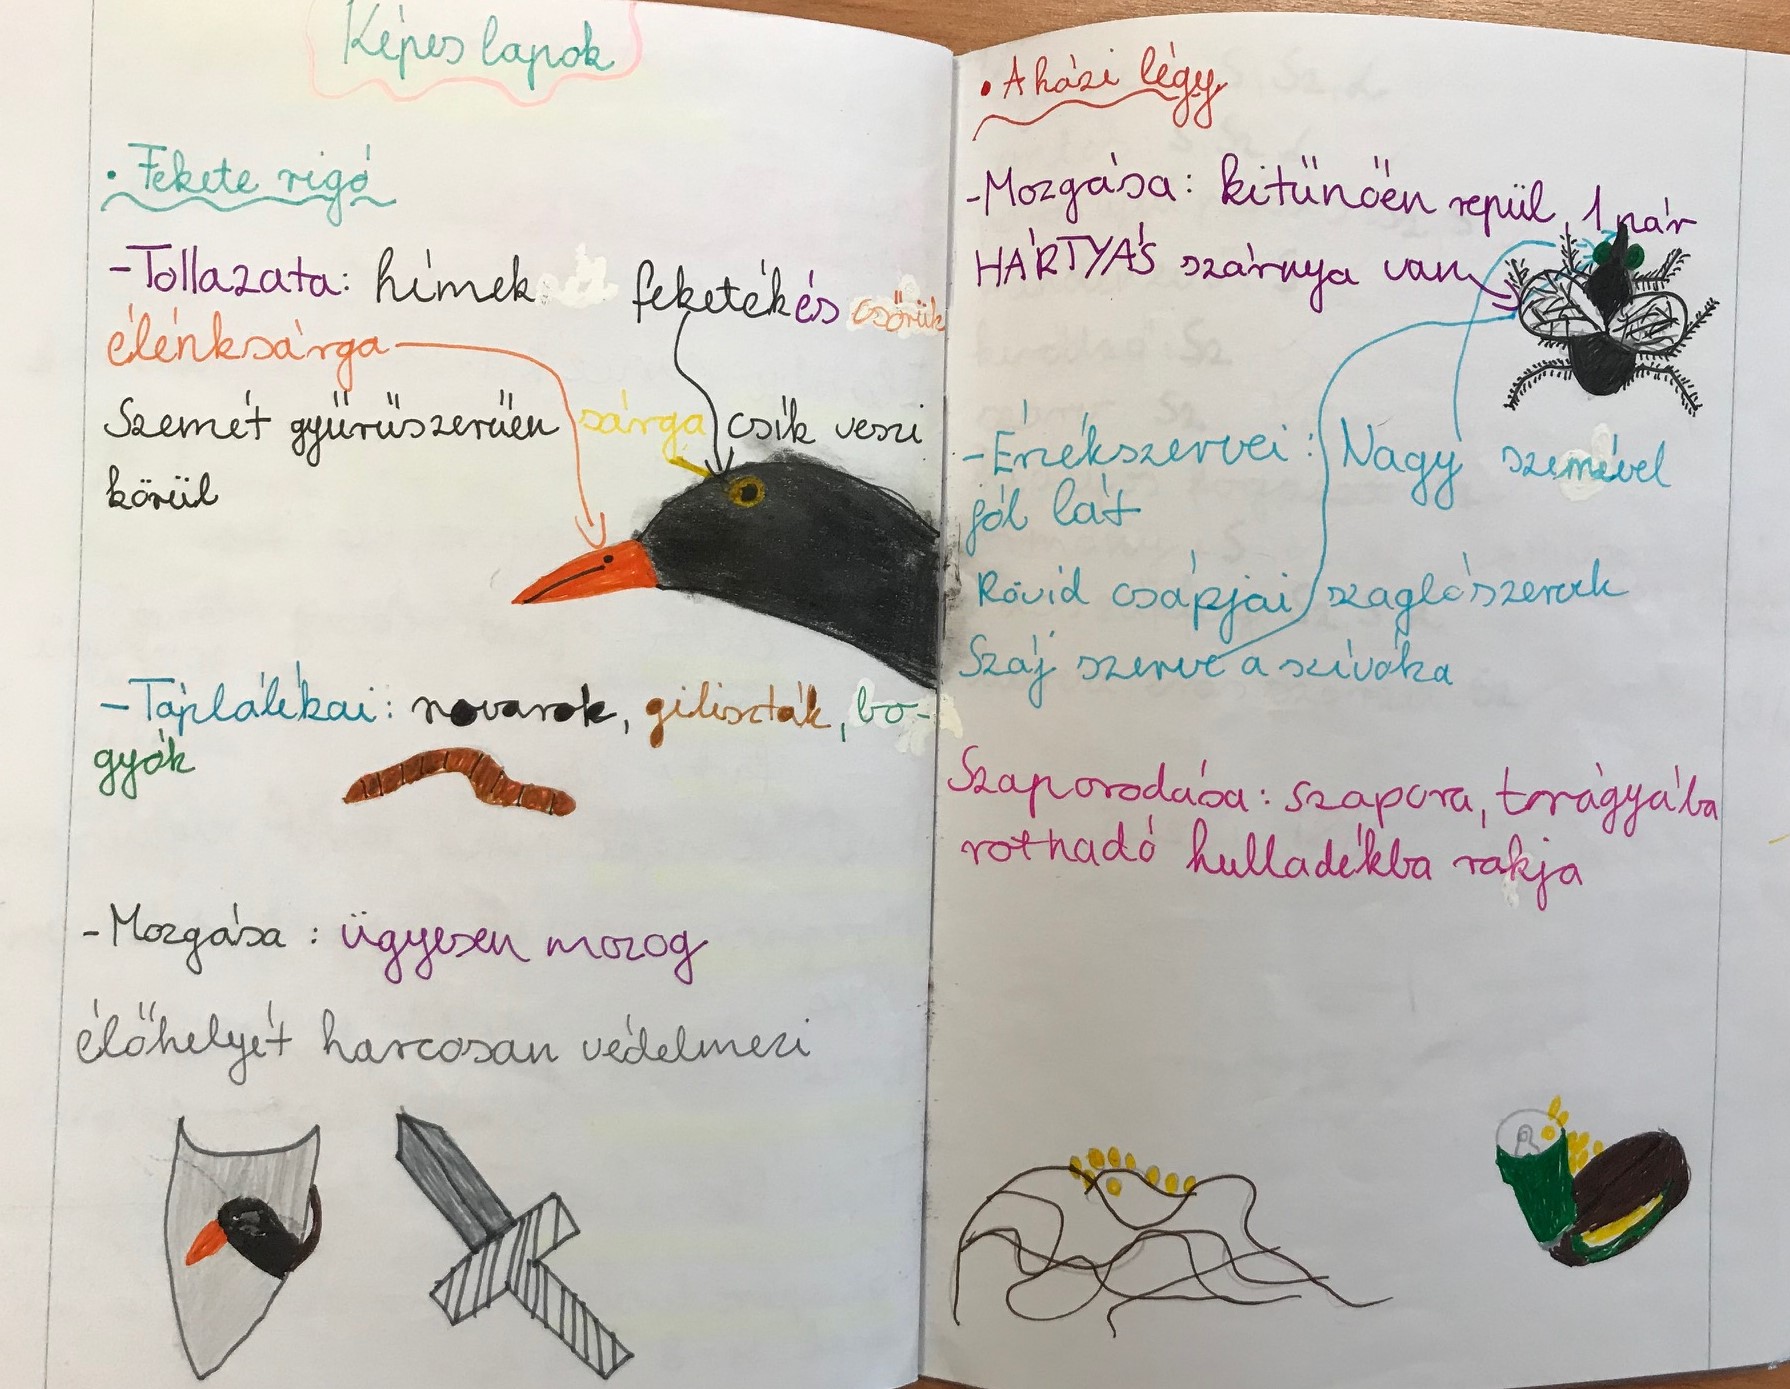 Képes lapok
• Fekete rigó
- Tollazata: hímek feketék és csőrük
élénksárga
Szemét gyűrűszerűen sárga csík veszi
körül
- Táplálékai: rovarok, giliszták, bo-
gyók
- Mozgása: ügyesen mozog
élőhelyét harcosan védelmezi
• A házi légy
- Mozgása: kitűnően repül, 1 pár
HÁRTYÁS szárnya van
- Érzékszervei: Nagy szemével
jól lát
Rövid csápjai szaglószervek
Száj szerve a szívóka
Szaporodása: szapora, trágyába
rothadó hulladékba rakja